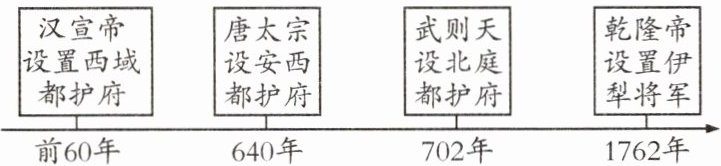 汉宣帝
设置西域
都护府
唐太宗
设安西
都护府
武则天
设北庭
都护府
乾隆帝
设置伊
犁将军
前60年
640年
702年
1762年